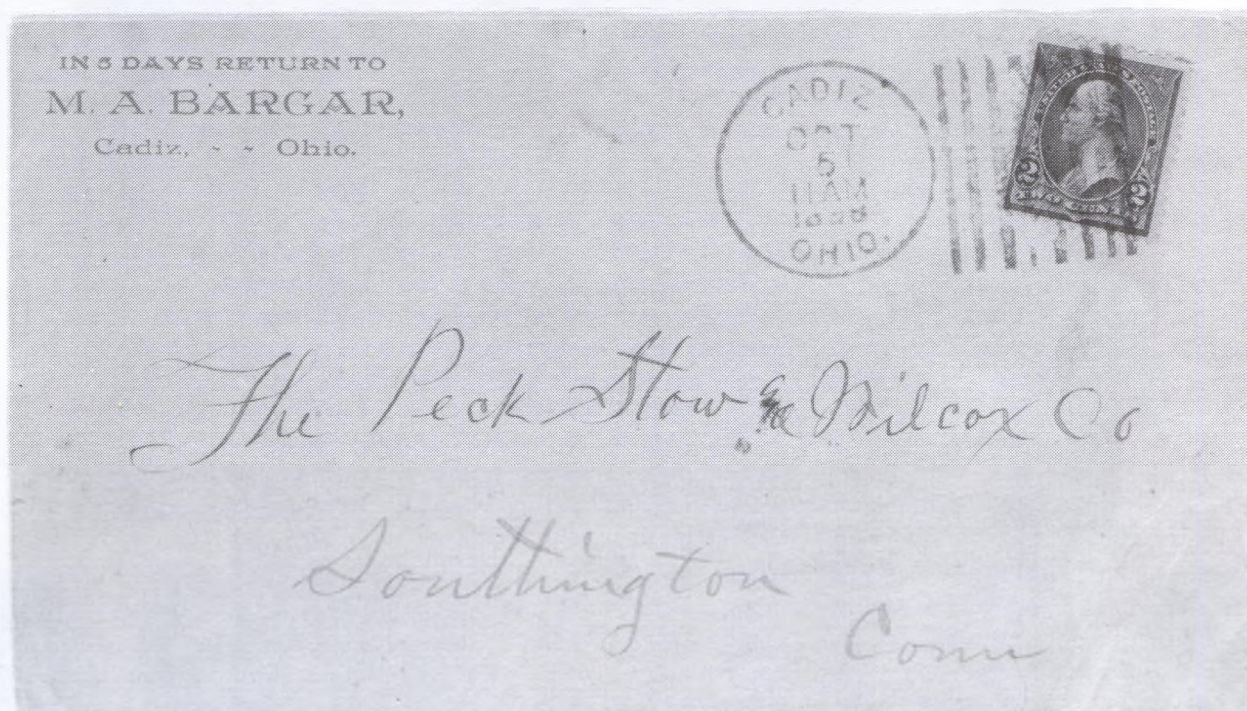 IN 5 DAYS RETURN TO
M. A. BARGAR,
Cadiz, - - Ohio.
CADIZ
OCT
5
11 AM
1898
OHIO.
UNITED STATES POSTAGE
2 2
TWO CENTS
The Peck Stow & Wilcox Co
Southington
Conn